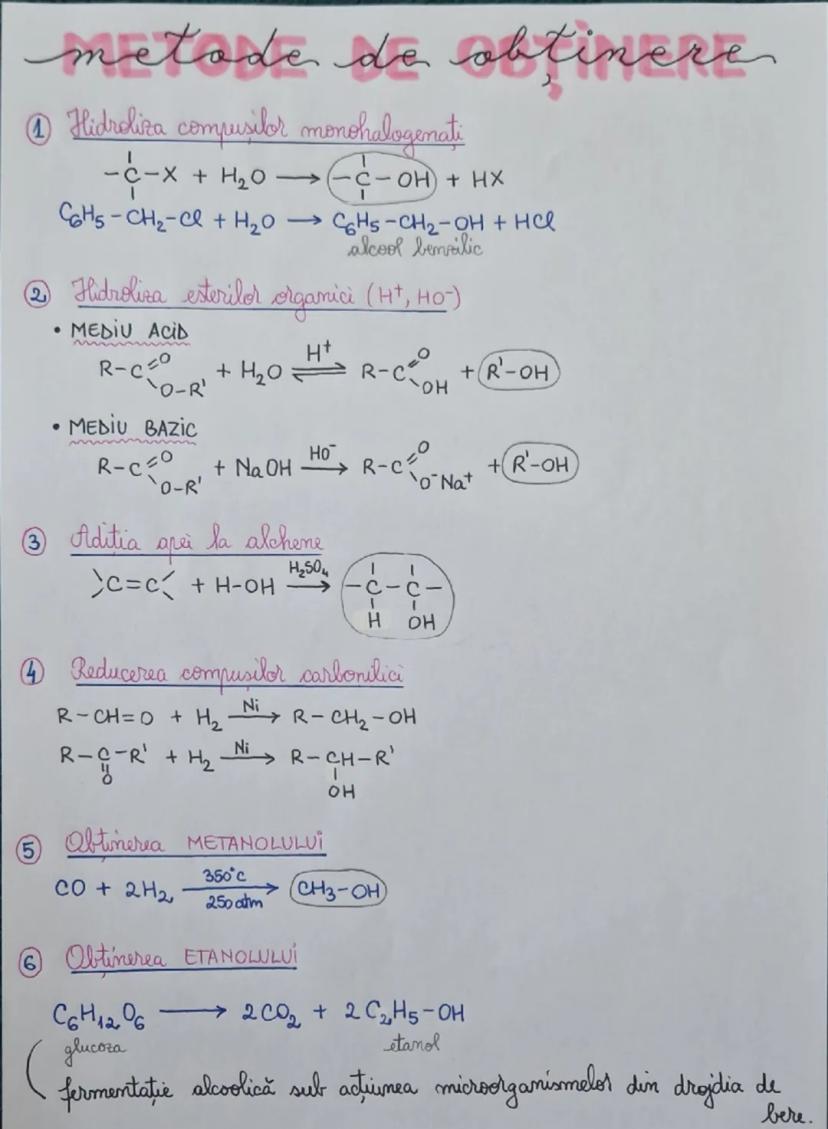 metode de obținere
METODE DE OBȚINERE
1 Hidroliza compușilor monohalogenați
-C-X + H₂O → -C-OH + HX
C₆H₅-CH₂-Cl + H₂O → C₆H₅-CH₂-OH + HCl
alcool benzilic
2 Hidroliza esterilor organici (H⁺, HO⁻)
• MEDIU ACID
R-C(=O)O-R' + H₂O ⇌ H⁺ R-C(=O)OH + R'-OH
• MEDIU BAZIC
R-C(=O)O-R' + NaOH → HO⁻ R-C(=O)O⁻Na⁺ + R'-OH
3 Aditia apei la alchene
>C=C< + H-OH → H₂SO₄ -C-C-
H OH
4 Reducerea compușilor carbonilici
R-CH=O + H₂ → Ni R-CH₂-OH
R-C-R' + H₂ → Ni R-CH-R'
O OH
5 Obținerea METANOLULUI
CO + 2H₂ → 350°C 250 atm CH₃-OH
6 Obținerea ETANOLULUI
C₆H₁₂O₆ → 2CO₂ + 2C₂H₅-OH
glucoza etanol
fermentație alcoolică sub acțiunea microorganismelor din drojdia de
bere.